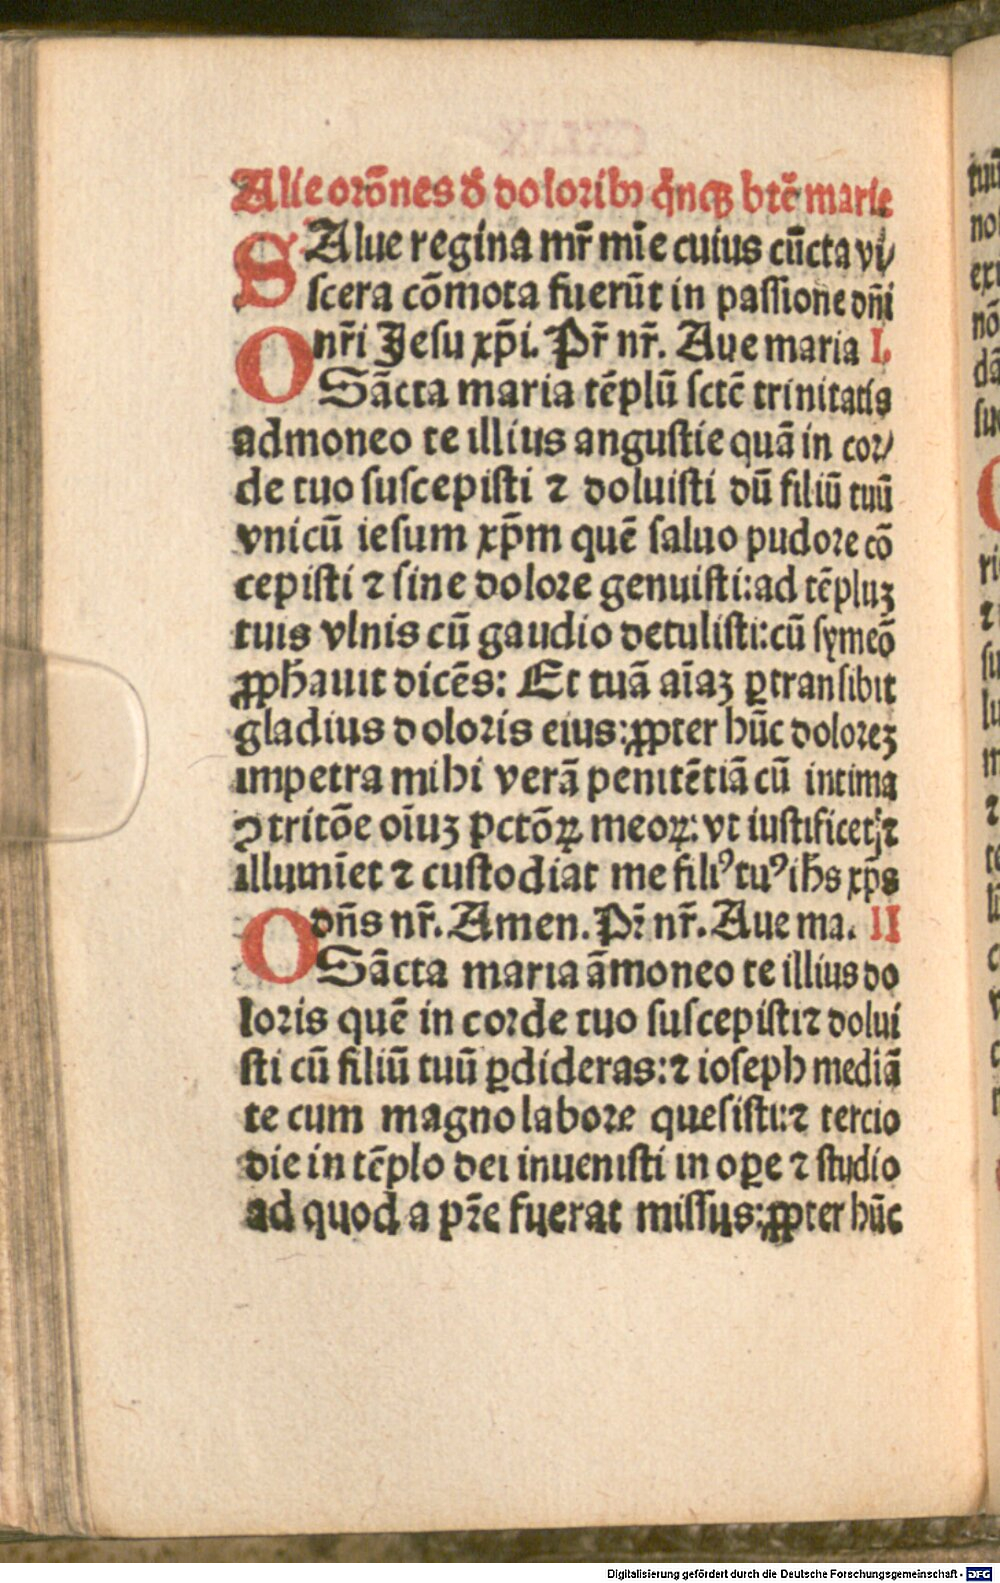 Alie orōnes ď doloribꝰ q̇nqꝫ btē marie
SAlue regina mr̄ mīe cuius cūcta vi/
scera cōmota fuerūt in passione dn̄i
nr̄i Jesu xp̄i. Pr̄ nr̄. Aue maria I.
O Sācta maria tēplū sctē trinitatis
admoneo te illius angustie quā in cor/
de tuo suscepisti ⁊ doluisti dū filiū tuū
vnicū iesum xp̄m quē saluo pudore cō
cepisti ⁊ sine dolore genuisti: ad tēpluꝫ
tuis vlnis cū gaudio detulisti: cū symeō
ꝓph̄auit dicēs: Et tuā aīaꝫ ꝑtransibit
gladius doloris eius: ꝓpter hūc doloreꝫ
impetra mihi verā penitētiā cū intima
ꝯtritōe oīuꝫ pctōꝝ meoꝝ: vt iustificet ⁊
illumīet ⁊ custodiat me filiꝰ tuꝰ ih̄s xp̄s
dn̄s nr̄. Amen. Pr̄ nr̄. Aue ma. II
O Sācta maria āmoneo te illius do
loris quē in corde tuo suscepisti ⁊ dolui
sti cū filiū tuū ꝑdideras: ⁊ ioseph mediā
te cum magno labore quesisti: ⁊ tercio
die in tēplo dei inuenisti in oꝑe ⁊ studio
ad quod a pr̄e fuerat missus: ꝓpter hūc
Digitalisierung gefördert durch die Deutsche Forschungsgemeinschaft - DFG